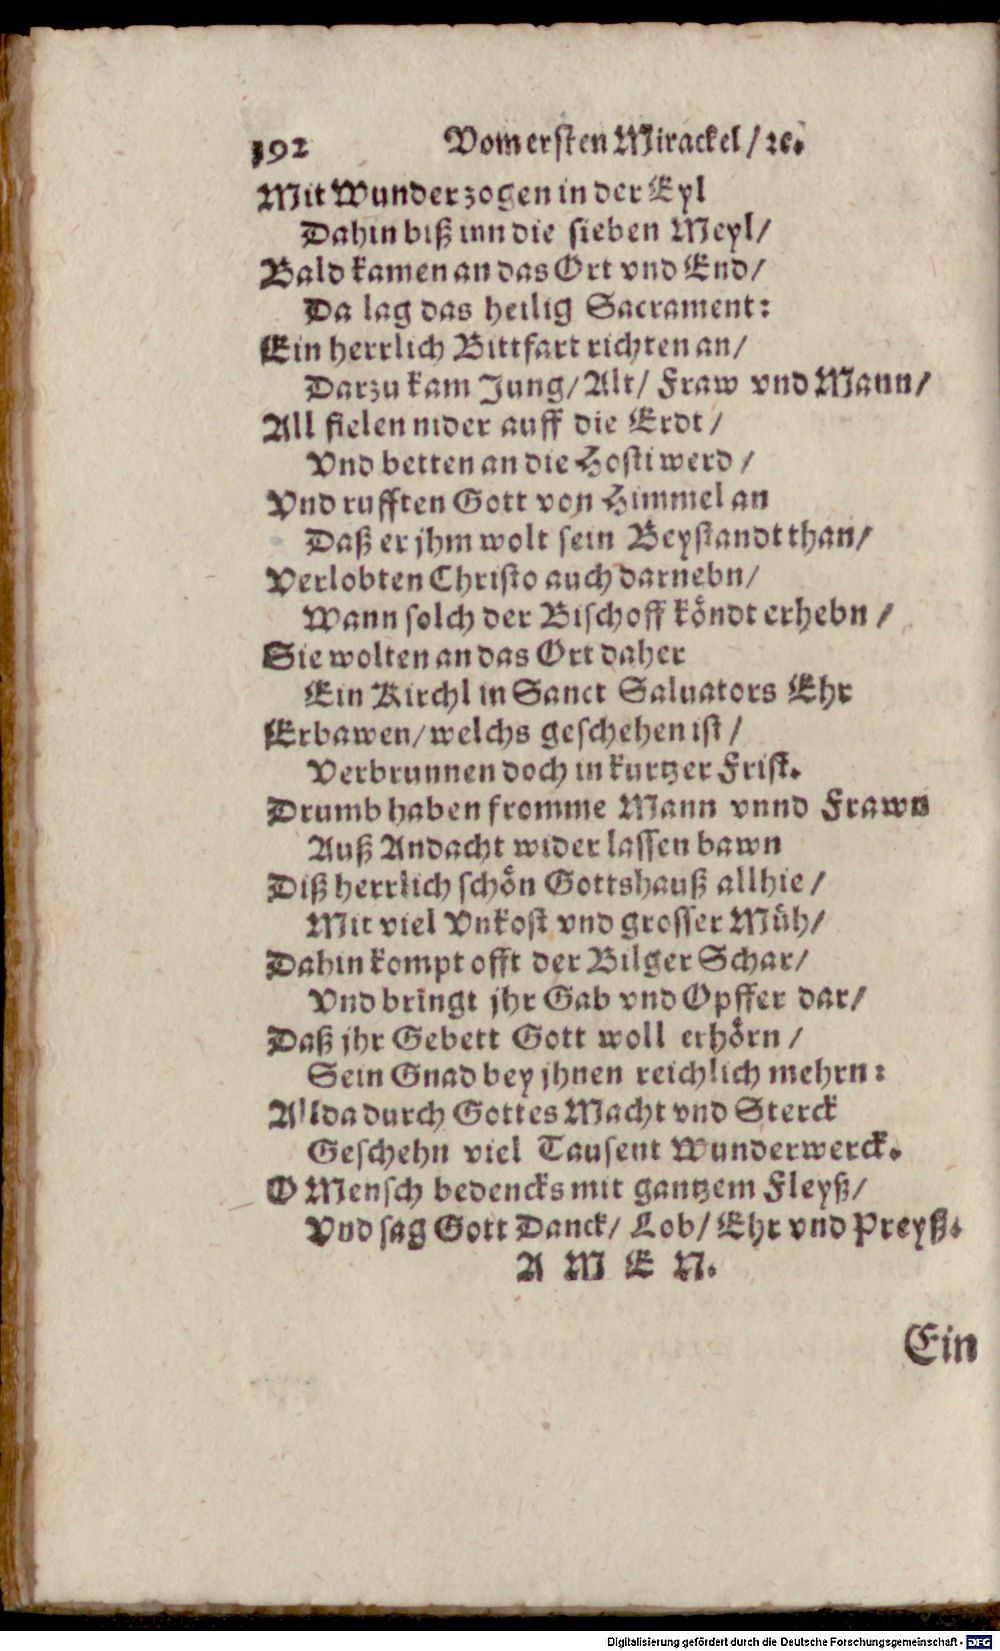 192 Vom ersten Mirackel / ꝛc.
Mit Wunder zogen in der Eyl
Dahin biß inn die sieben Meyl /
Bald kamen an das Ort vnd End /
Da lag das heilig Sacrament:
Ein herrlich Bittfart richten an /
Darzu kam Jung / Alt / Fraw vnd Mann /
All fielen nider auff die Erdt /
Vnd betten an die Hosti werd /
Vnd rufften Gott von Himmel an
Daß er jhm wolt sein Beystandt than /
Verlobten Christo auch darnebn /
Wann solch der Bischoff köndt erhebn /
Sie wolten an das Ort daher
Ein Kirchl in Sanct Saluators Ehr
Erbawen / welchs geschehen ist /
Verbrunnen doch in kurtzer Frist.
Drumb haben fromme Mann vnnd Frawn
Auß Andacht wider lassen bawn
Diß herrlich schön Gottshauß allhie /
Mit viel Vnkost vnd grosser Müh /
Dahin kompt offt der Bilger Schar /
Vnd bringt jhr Gab vnd Opffer dar /
Daß jhr Gebett Gott woll erhörn /
Sein Gnad bey jhnen reichlich mehrn:
Allda durch Gottes Macht vnd Sterck
Geschehn viel Tausent Wunderwerck.
O Mensch bedencks mit gantzem Fleyß /
Vnd sag Gott Danck / Lob / Ehr vnd Preyß.
A M E N.
Ein
Digitalisierung gefördert durch die Deutsche Forschungsgemeinschaft - DFG